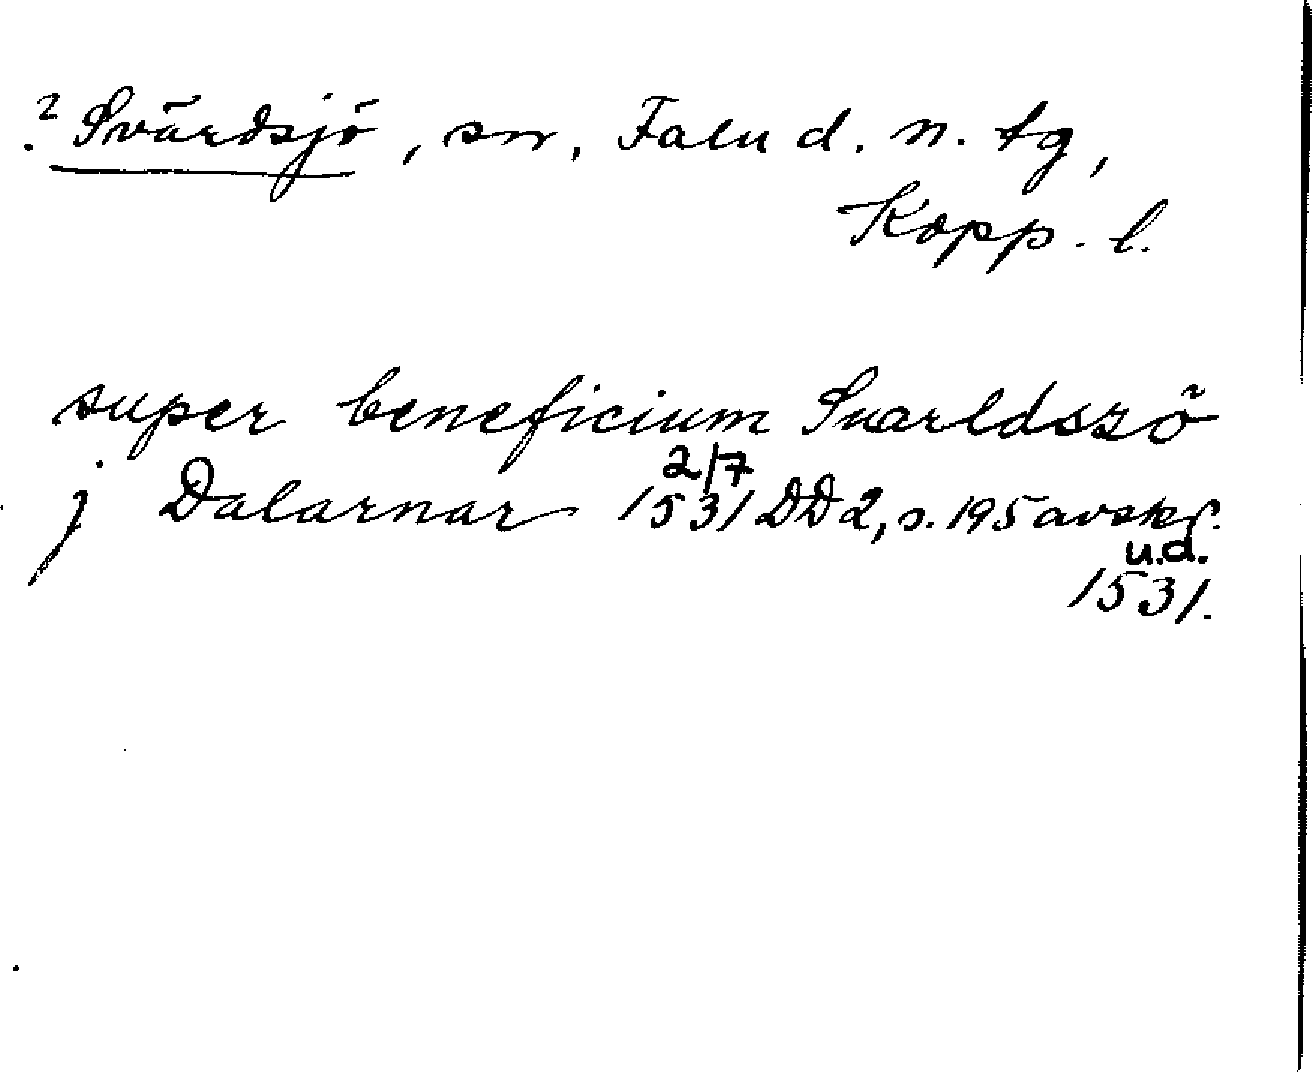 ? Svärdsjö, sn, Falu d. n. tg,
Kopp. l.
super beneficium Suarldszö
j Dalarnar 1531 DD2, s. 195 avskr.
2/7
u.d.
1531.